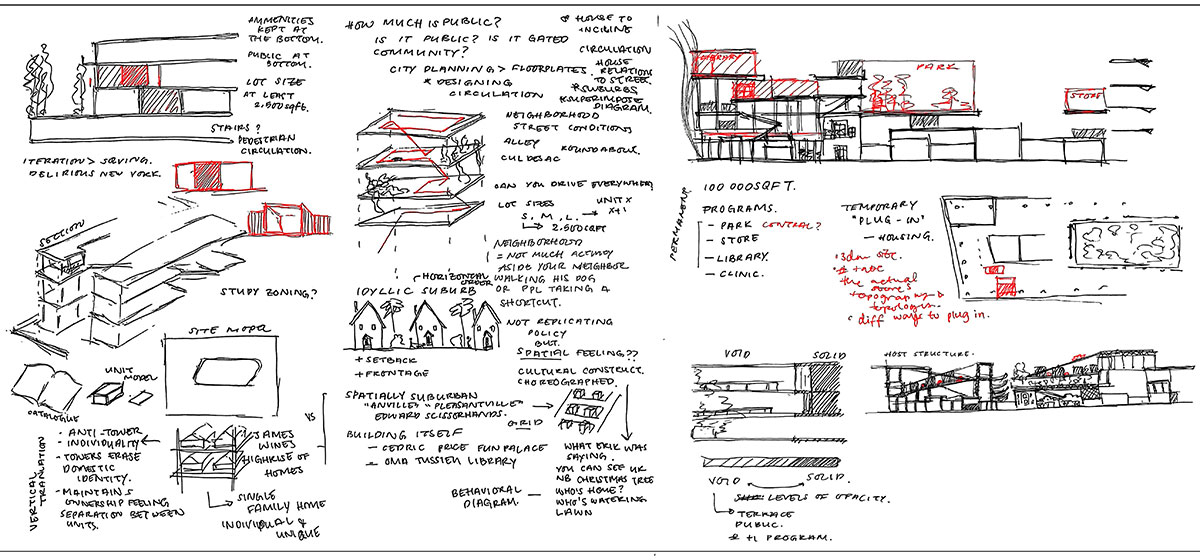 AMMENITIES
KEPT AT
THE BOTTOM.
PUBLIC AT
BOTTOM.
LOT SIZE
AT LEAST
2,500 SQFT.
STAIRS?
PEDESTRIAN
CIRCULATION.
ITERATION > SOLVING.
DELIRIOUS NEW YORK.
SECTION
STUDY ZONING?
SITE MODEL
UNIT
MODEL
CATALOGUE
VERTICAL
TRANSLATION
- ANTI-TOWER
- INDIVIDUALITY
- TOWERS ERASE
DOMESTIC
IDENTITY.
- MAINTAINS
OWNERSHIP FEELING
SEPARATION BETWEEN
UNITS.
VS
JAMES
WINES
HIGHRISE OF
HOMES
SINGLE
FAMILY HOME
INDIVIDUAL &
UNIQUE
HOW MUCH IS PUBLIC?
IS IT PUBLIC? IS IT GATED
COMMUNITY?
CITY PLANNING > FLOORPLATES.
* DESIGNING
CIRCULATION
HOUSE TO
CIRCULATION
HOUSE
RELATION
TO STREET.
* SUBURBS
* SUPERIMPOSE
DIAGRAM.
NEIGHBORHOOD
STREET CONDITIONS
ALLEY
ROUNDABOUT.
CULDESAC
CAN YOU DRIVE EVERYWHERE?
LOT SIZES
UNIT X
X+1
S, M, L.
2,500 SQFT
NEIGHBORHOOD
= NOT MUCH ACTIVITY
ASIDE YOUR NEIGHBOR
WALKING HIS DOG
OR PPL TAKING A
SHORTCUT.
HORIZONTAL
ORDER
IDYLLIC SUBURB
NOT REPLICATING
POLICY
BUT.
SPATIAL FEELING??
+ SETBACK
+ FRONTAGE
CULTURAL CONSTRUCT.
CHOREOGRAPHED.
SPATIALLY SUBURBAN
"PLEASANTVILLE"
EDWARD SCISSORHANDS.
GRID
BUILDING ITSELF
- CEDRIC PRICE FUN PALACE
- OMA JUSSIEU LIBRARY
WHAT ERIK WAS
SAYING.
YOU CAN SEE UR
NB CHRISTMAS TREE
WHO'S HOME?
WHO'S WATERING
LAWN
BEHAVIORAL
DIAGRAM.
LIBRARY
PARK
STORE
PERMANENT
100 000 SQFT.
PROGRAMS.
- PARK CENTRAL?
- STORE
- LIBRARY.
- CLINIC.
TEMPORARY
"PLUG-IN"
- HOUSING.
the actual
diff ways to plug in.
VOID
SOLID
HOST STRUCTURE.
VOID
SOLID
LEVELS OF OPACITY.
TERRACE
PUBLIC.
& +1 PROGRAM.